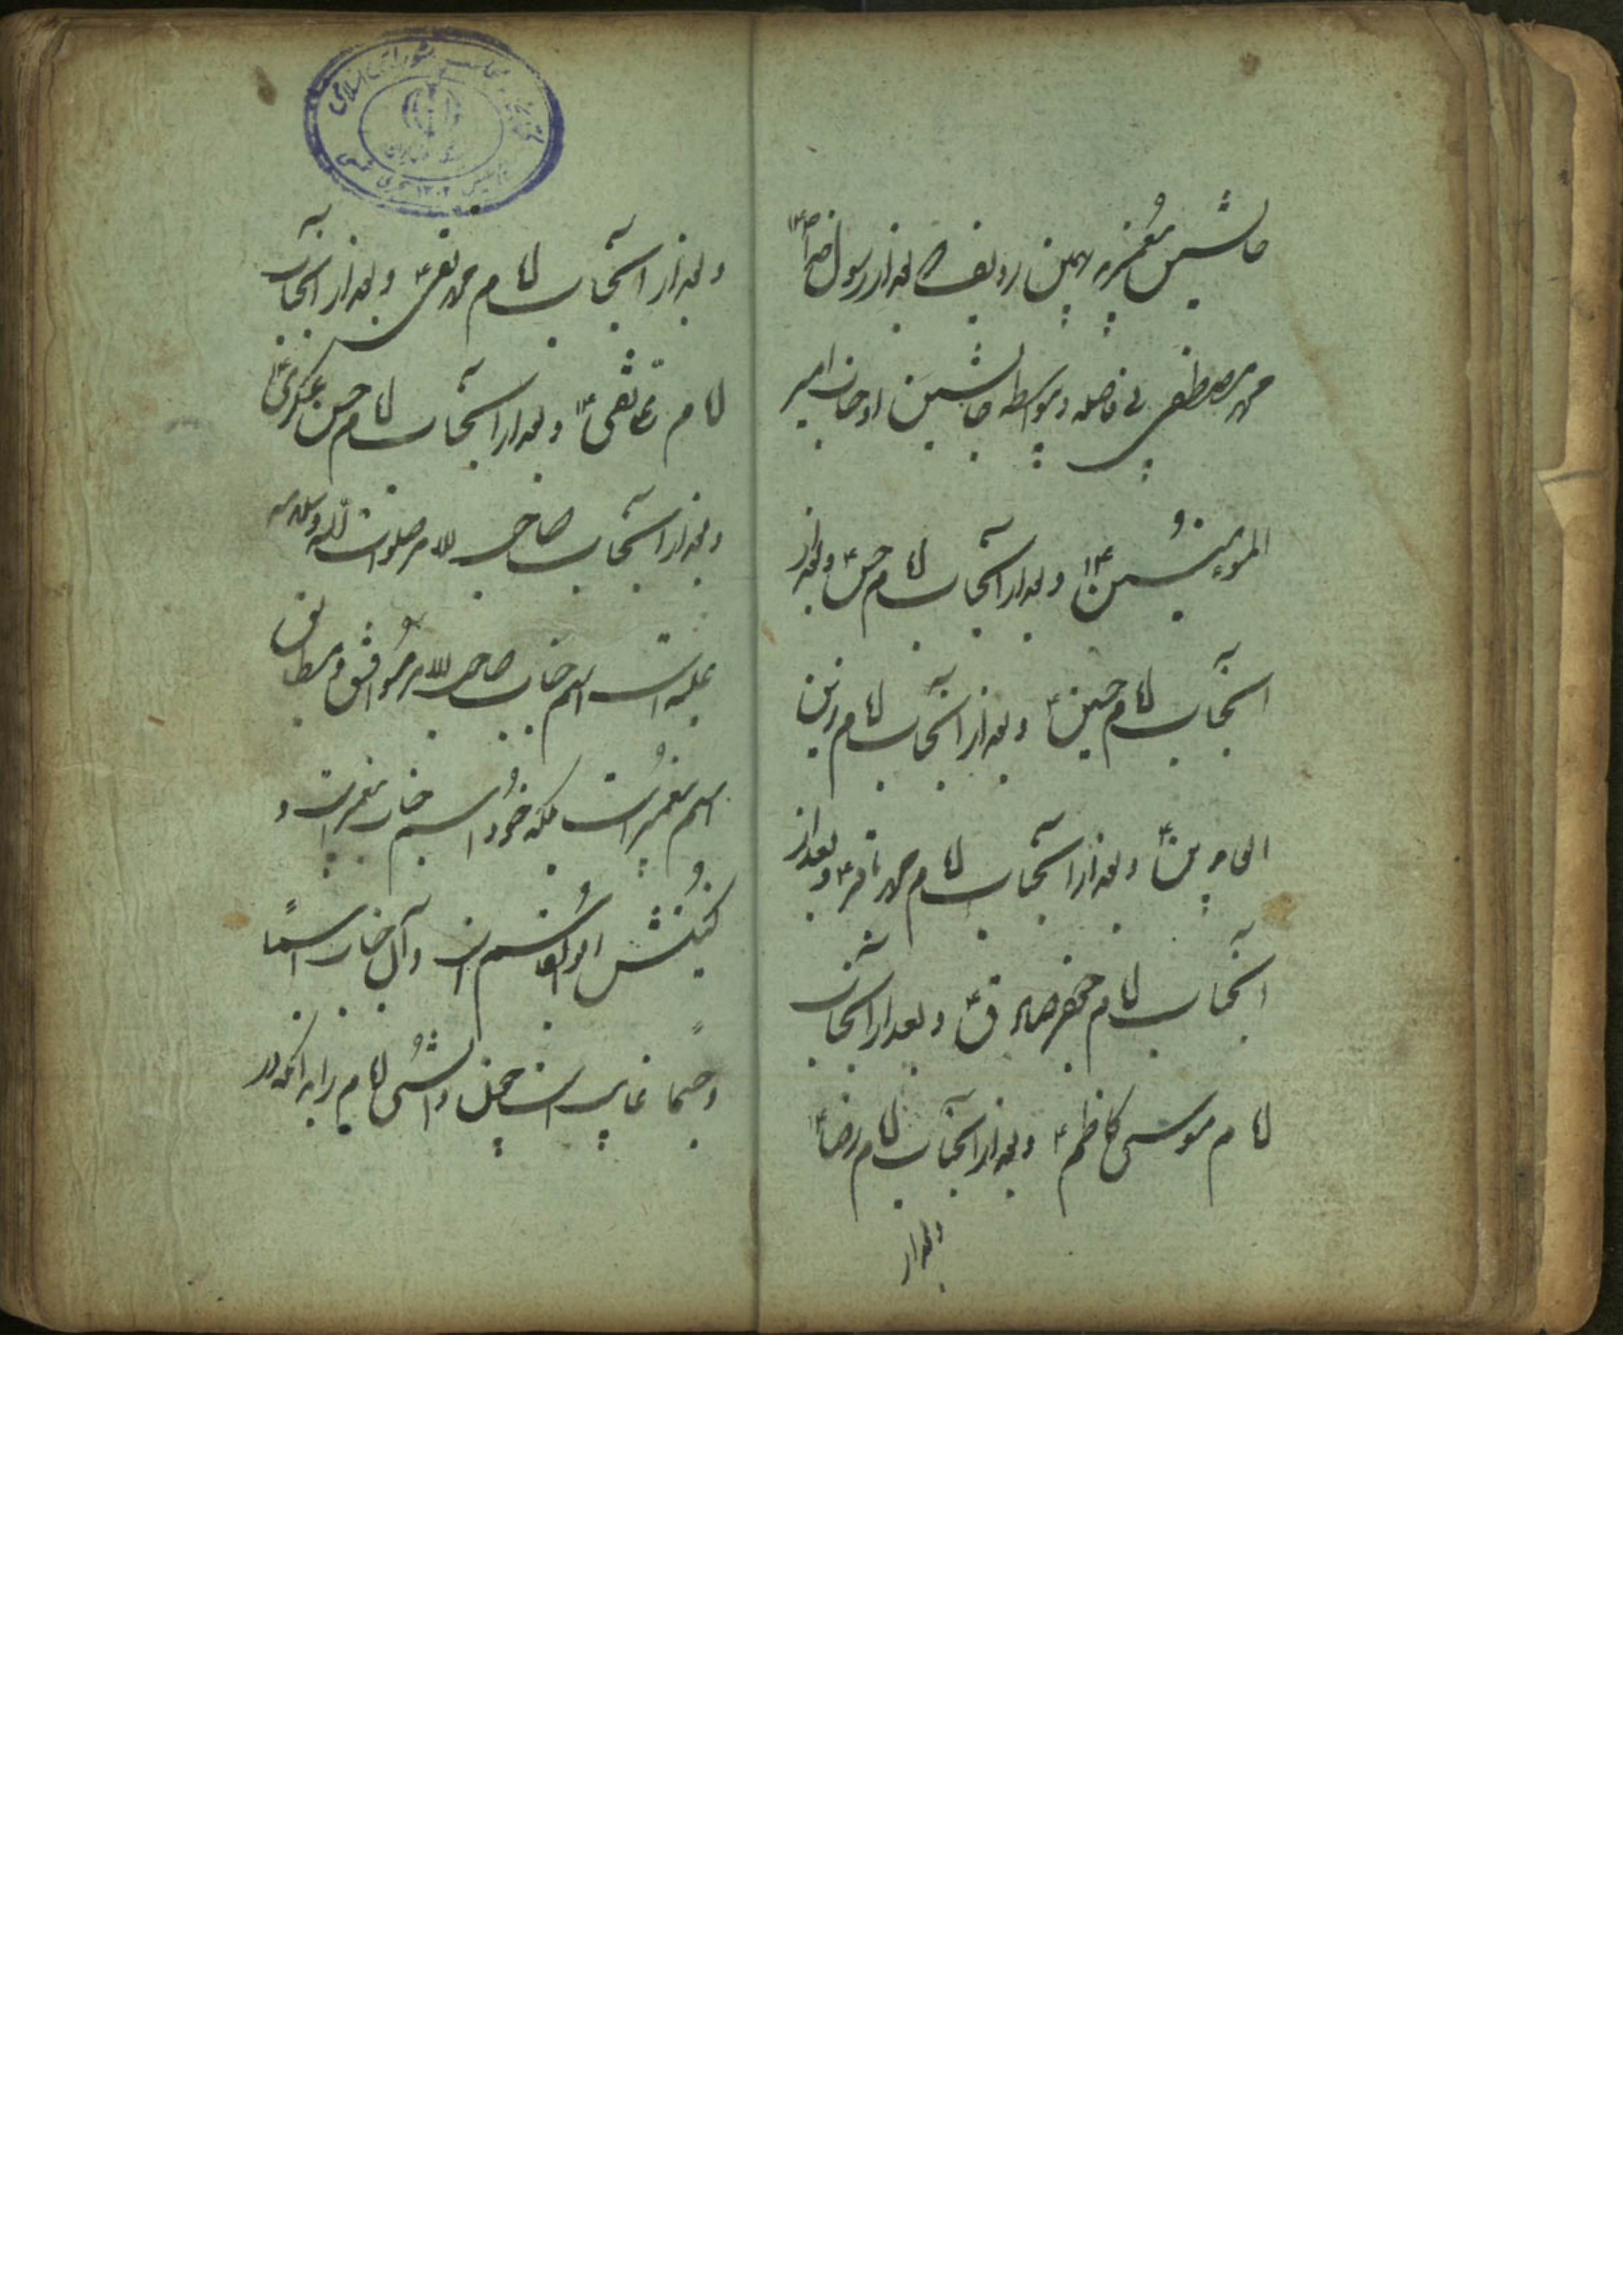 جانشین پیغمبرند بهمین ردیف که بعد از رسول خدا ص
محمد مصطفی بی فاصله و بیواسطه جانشین او جناب امیر
المؤمنین ع و بعد از آنجناب امام حسن ع و بعد از
آنجناب امام حسین ع و بعد از آنجناب امام زین
العابدین ع و بعد از آنجناب امام محمد باقر ع و بعد از
آنجناب امام جعفر صادق ع و بعد از آنجناب
امام موسی کاظم ع و بعد از آنجناب امام رضا ع
و بعد از
و بعد از آنجناب امام محمد تقی ع و بعد از آنجناب
امام علی نقی ع و بعد از آنجناب امام حسن عسکری ع
و بعد از آنجناب صاحب الامر صلوات الله و سلامه
علیه است اسم جناب صاحب الامر موافق و مطابق
اسم پیغمبر است بلکه خود اسم جناب پیغمبر است و
کنیتش ابوالقاسم است و آن جناب اسماً
و جسماً غایب است چنین دانستی امام را بدانکه در